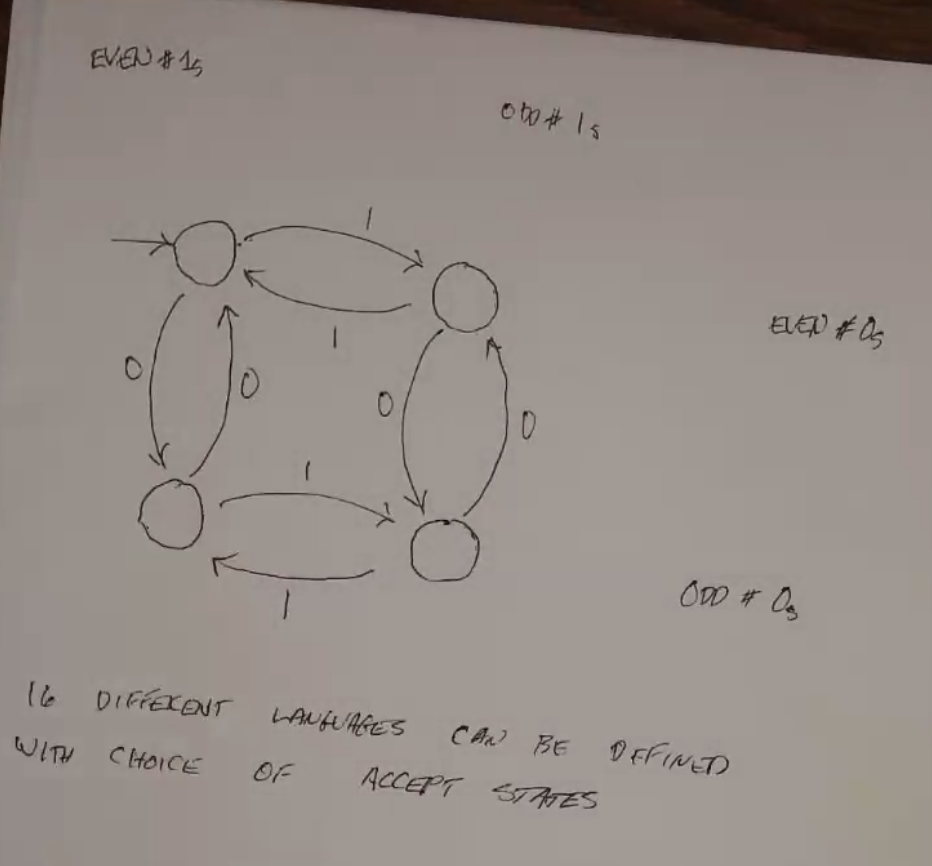 EVEN # 1s
ODD # 1s
1
1
EVEN # 0s
0
0
0
0
1
1
ODD # 0s
16 DIFFERENT LANGUAGES CAN BE DEFINED
WITH CHOICE OF ACCEPT STATES